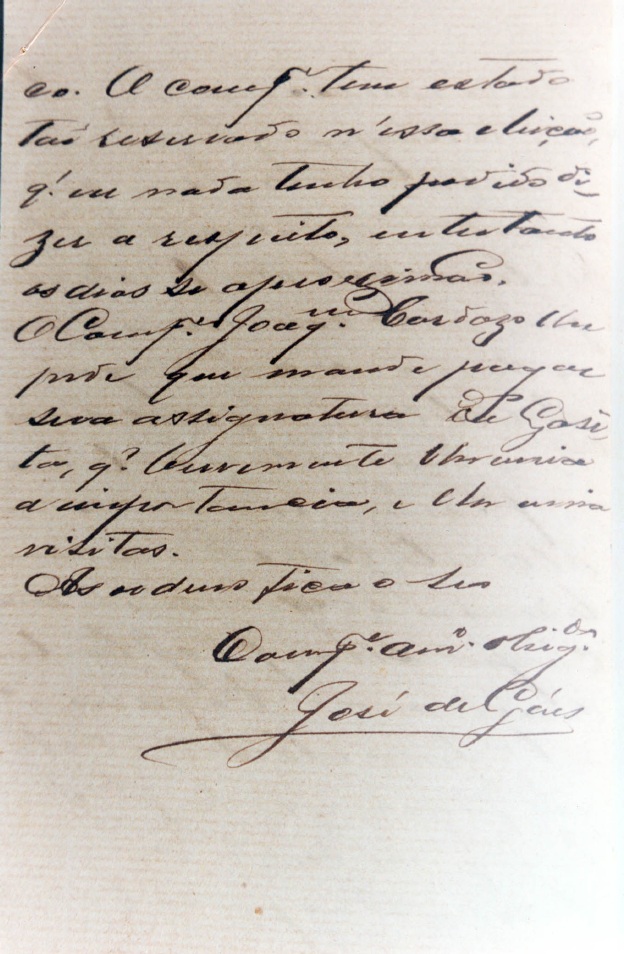 co. O comp.e tem estado
tão reservado n'essa eleição,
q' eu nada tenho podido di-
zer a respeito, entretanto
os dias se aproximão.
O Comp.e Joaq.m Cardozo lhe
pede que mande pagar
sua assignatura da Gasi-
ta, q' brevemente lhe envia
a importancia, e lhe envia
visitas.
As ordens fica o seu
Comp.e am.o obrig.do
José de Góes